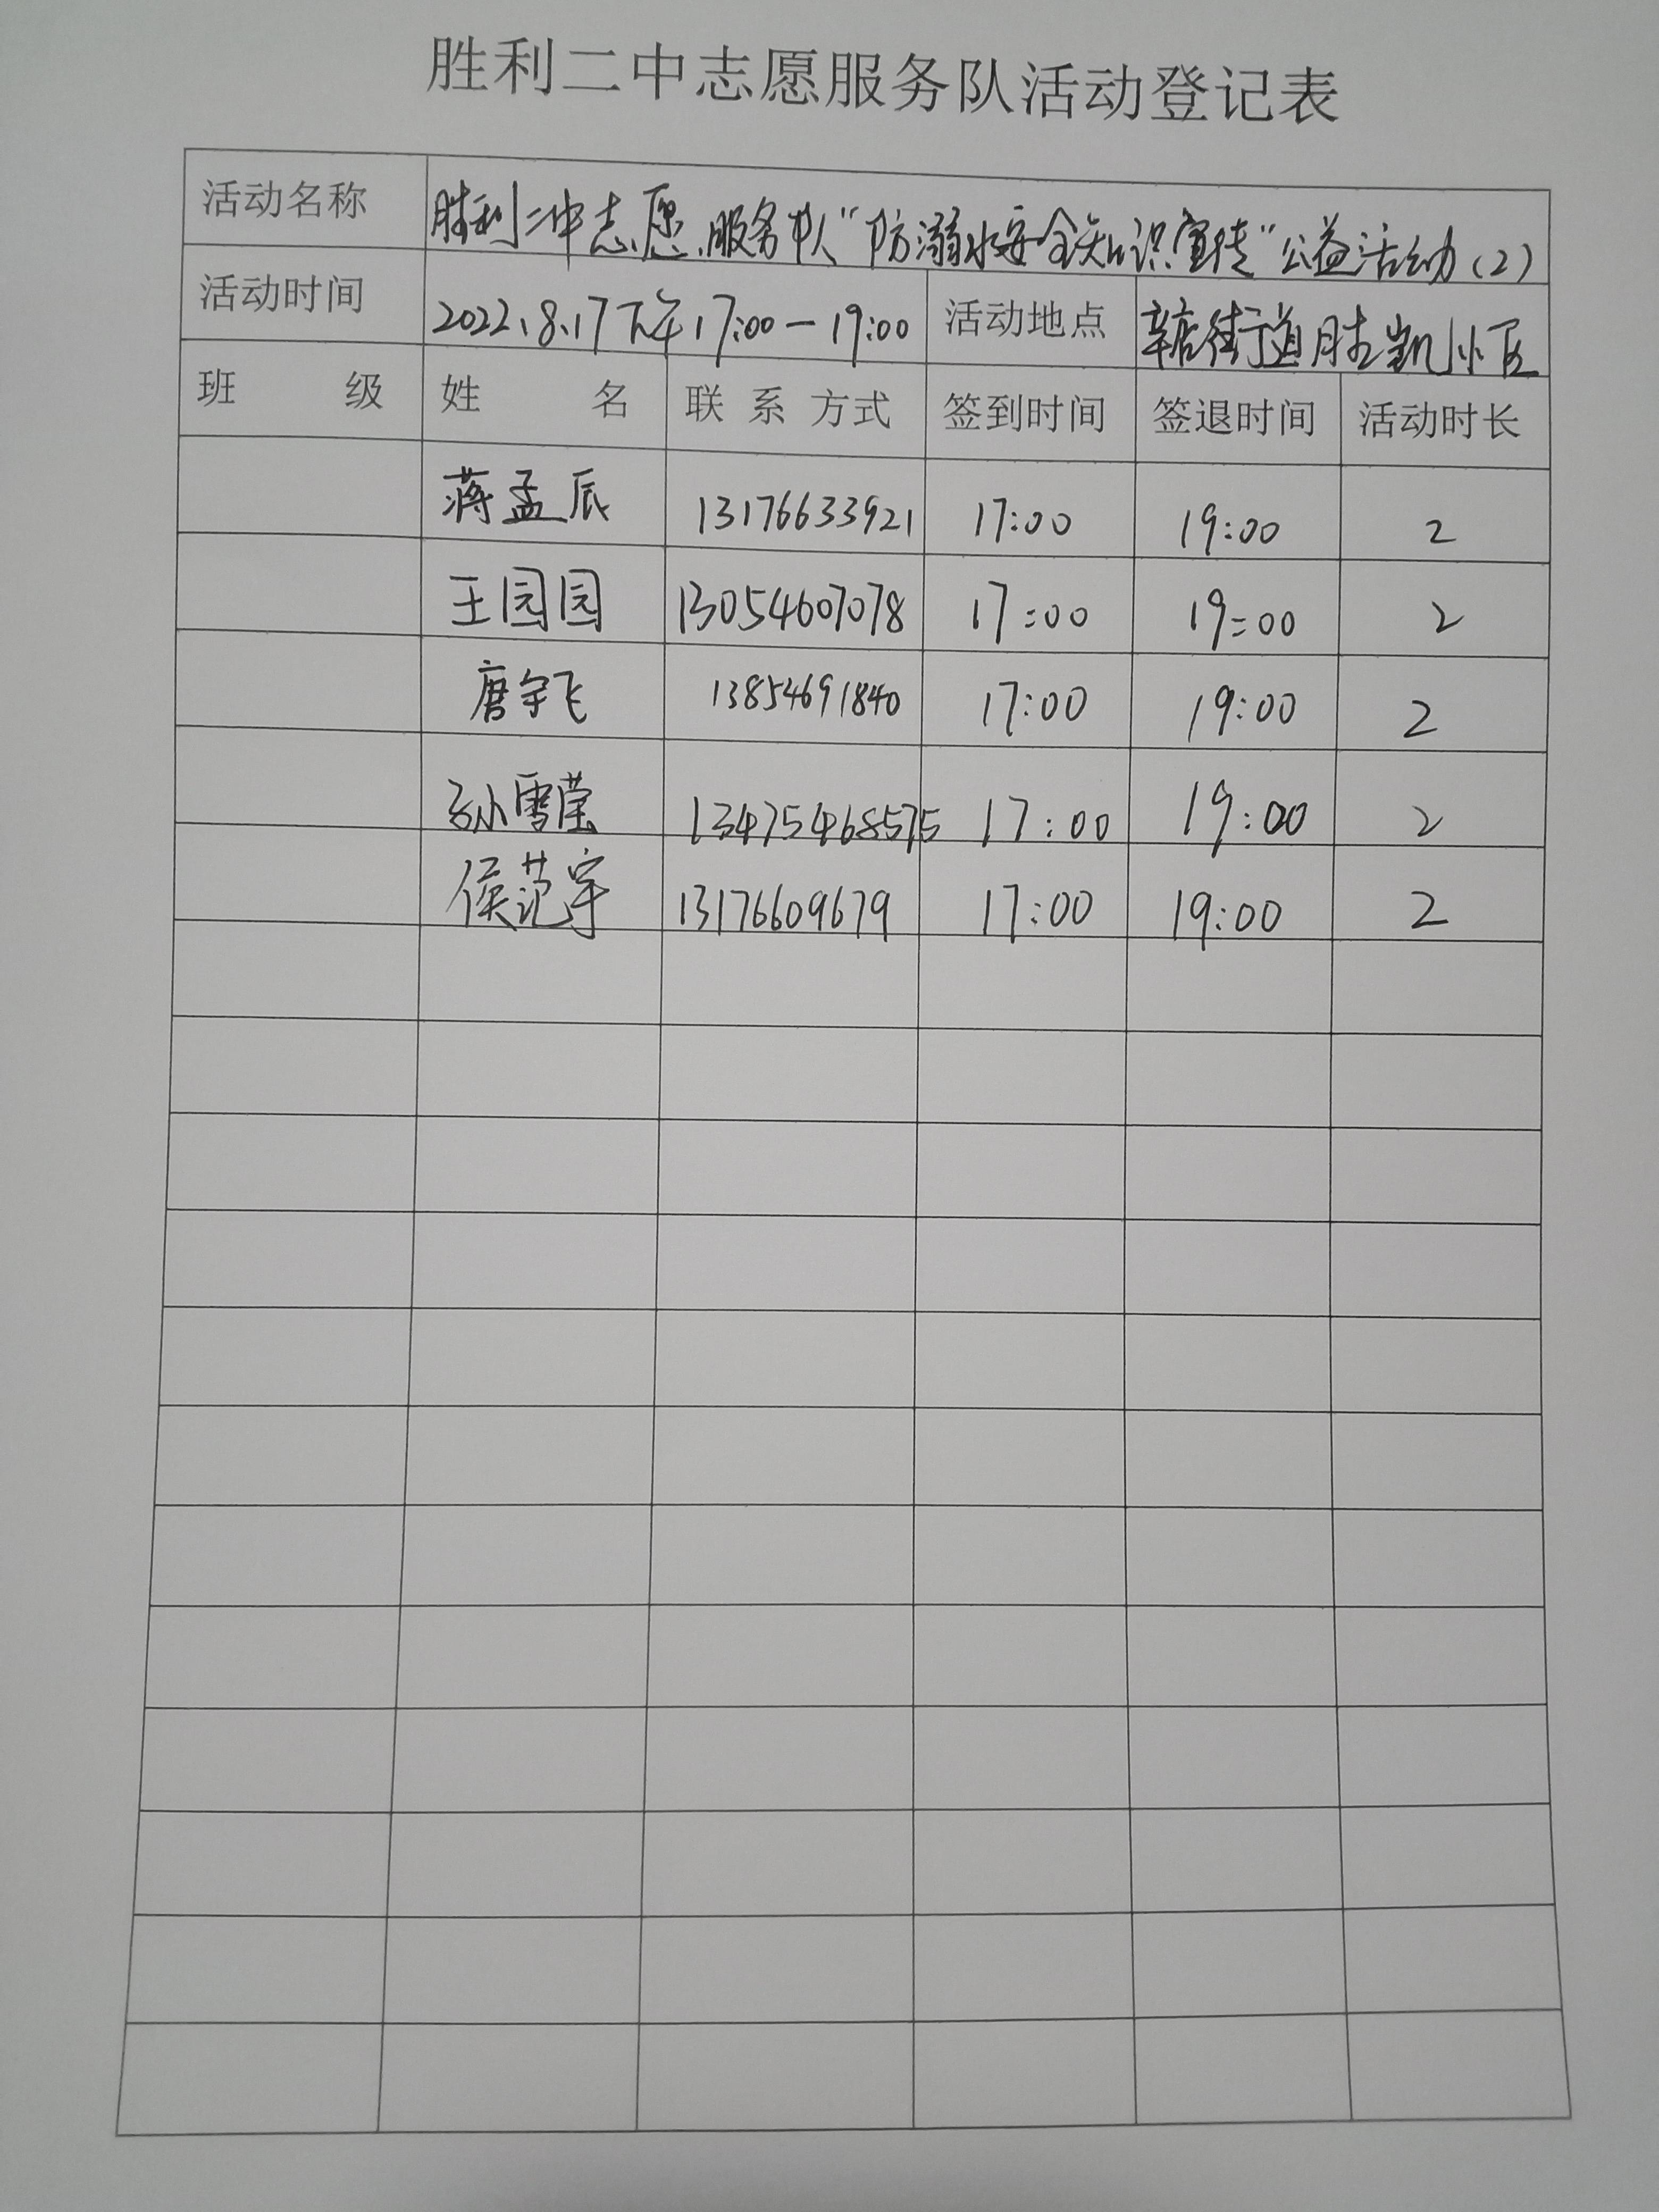 胜利二中志愿服务队活动登记表
活动名称 胜利二中志愿服务队“防溺水安全知识宣传”公益活动(2)
活动时间 2022.8.17下午17:00—19:00 活动地点 辛店街道胜凯小区
班 级 姓 名 联系方式 签到时间 签退时间 活动时长
蒋孟辰 13176633921 17:00 19:00 2
王园园 13054607078 17:00 19:00 2
唐宇飞 13854691840 17:00 19:00 2
孙雪莹 13475468575 17:00 19:00 2
侯范宇 13176609679 17:00 19:00 2